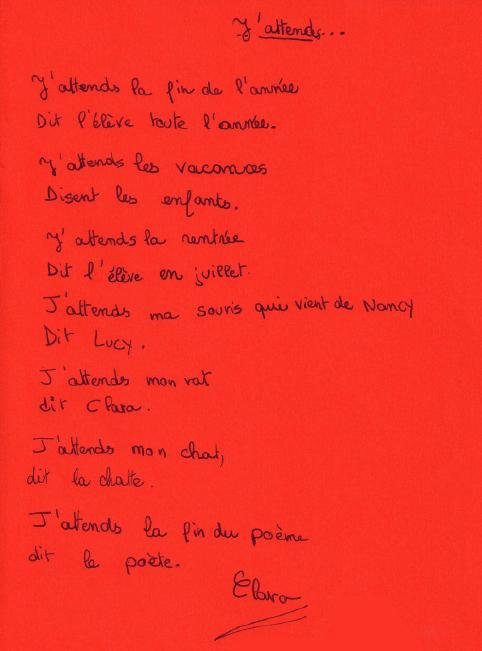 J'attends...
J'attends la fin de l'année
Dit l'élève toute l'année.
J'attends les vacances
Disent les enfants.
J'attends la rentrée
Dit l'élève en juillet.
J'attends ma souris qui vient de Nancy
Dit Lucy.
J'attends mon rat
dit Clara.
J'attends mon chat,
dit la chatte.
J'attends la fin du poème
dit le poète.
Clara